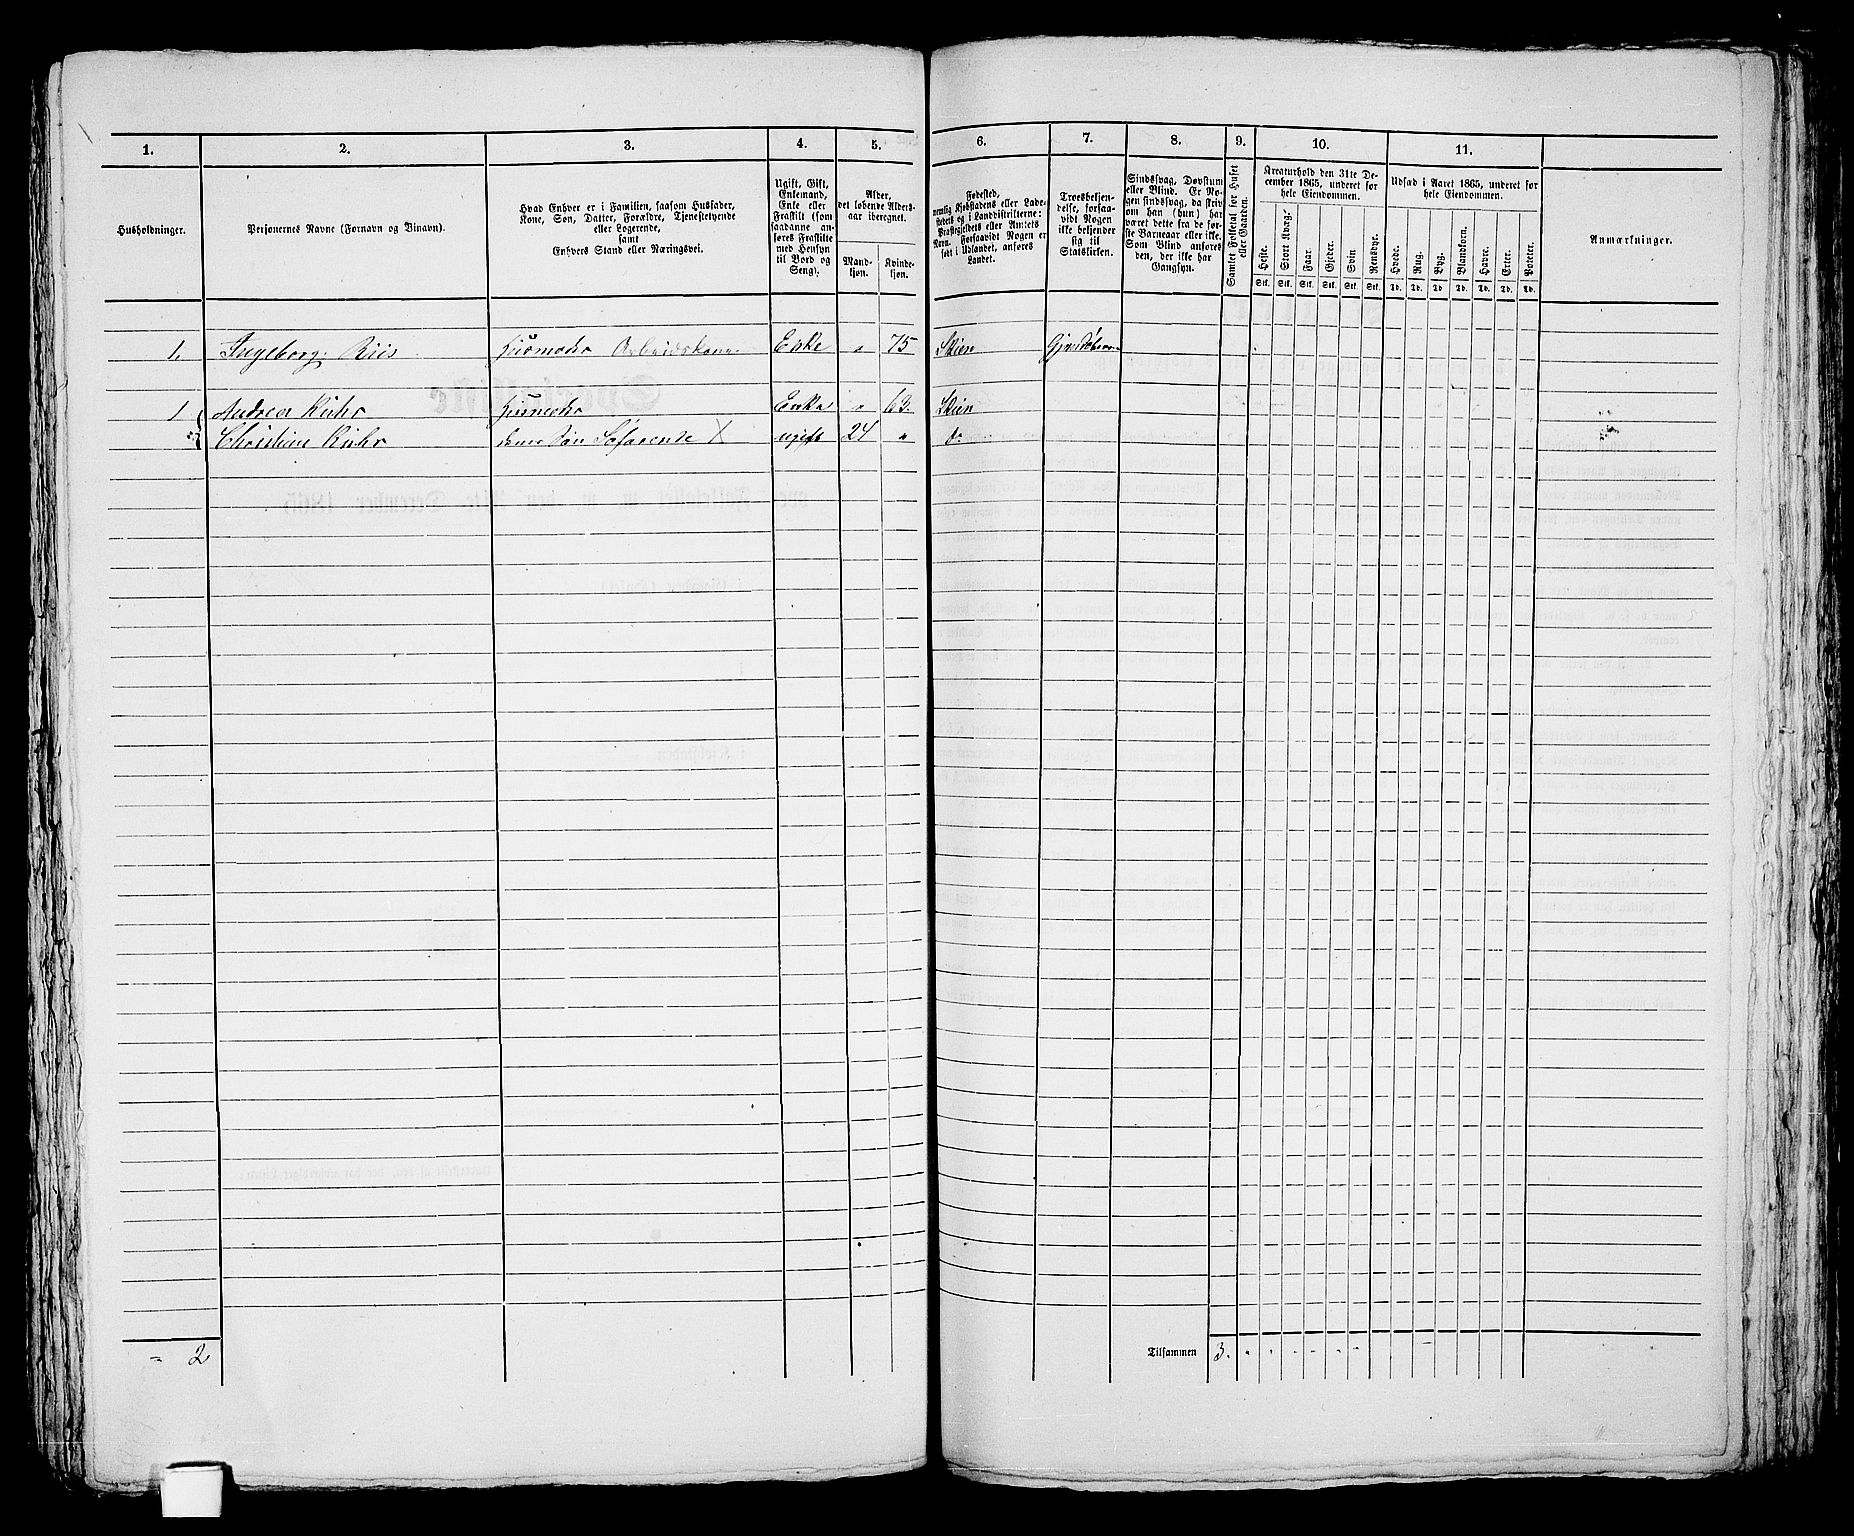 1. 2. 3. 4. 5. 6. 7. 8. 9. 10. 11.
Husholdninger.
Personernes Navne (Fornavn og Tilnavn).
Hvad Enhver er i Familien, saasom Husfader,
Kone, Søn, Datter, Forældre, Tjenestetyende
eller Logerende,
samt
Enhvers Stand eller Næringsvei.
Ugift, Gift,
Enkemand,
Enke eller
Fraskilt (som
saadanne an-
føres Fraskilte
med Hensyn
til Bord og
Seng).
Alder,
det løbende Alders-
aar iberegnet.
Mand-
kjøn.
Kvinde-
kjøn.
Fødested,
nemlig Kjøbstadens eller Lade-
stedets og i Landdistrikterne:
Præstegjeldets eller Amtets
Navn. Forsaavidt Nogen er
født i Udlandet, anføres
Landet.
Troesbekjen-
delse, forsaa-
vidt Nogen
ikke bekjender
sig til
Statskirken.
Sindssvag, Døvstum
eller Blind. Er No-
gen sindssvag, da skriv
om han (hun) har
været dette fra de før-
ste Barneaar eller ikke.
Som Blind anføres
den, der ikke har
Gangsyn.
Samlet Folketal for Huset
eller Gaarden.
Kreaturhold den 31te De-
cember 1865, underet for
hele Eiendommen.
Heste. Stort Kvæg. Faar. Gjeder. Svin Rensdyr.
Stk. Stk. Stk. Stk. Stk. Stk.
Udsæd i Aaret 1865, underet for
hele Eiendommen.
Hvede. Rug. Byg. Blandkorn. Havre. Erter. Poteter.
Td. Td. Td. Td. Td. Td. Td.
Anmærkninger.
1. Ingeborg Riis Huusmoder Enke " 75 Skien
1 Andrea Kuhr Huusmoder Enke " 63. Skien
Christine Kuhr Søn Søfarende X ugift 24 " do
= 2
Tilsammen 3. " " " " " "